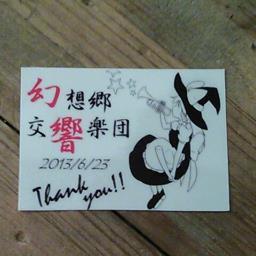 幻想郷
交響楽団
2013/6/23
Thank
you!!